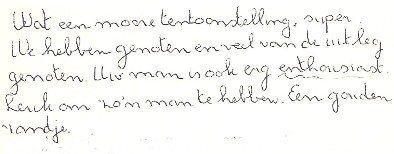 Wat een mooie tentoonstelling, super.
We hebben genoten en veel van de uitleg
genoten. Uw man is ook erg enthousiast.
Leuk om zo'n man te hebben. Een gouden
randje.